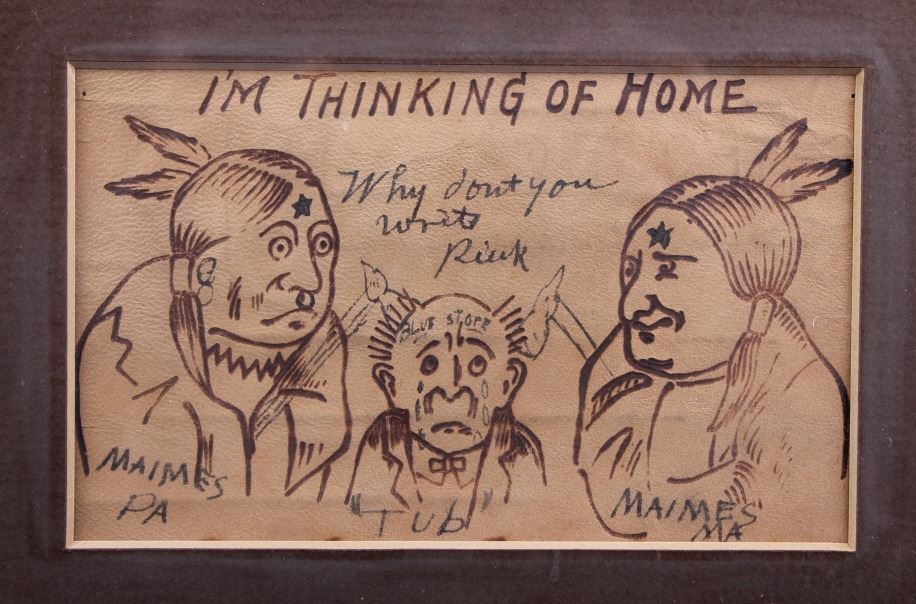 I'M THINKING OF HOME
Why dont you
write
BLUE STOPE
MAIMES
PA
"TUB"
MAIMES
MA